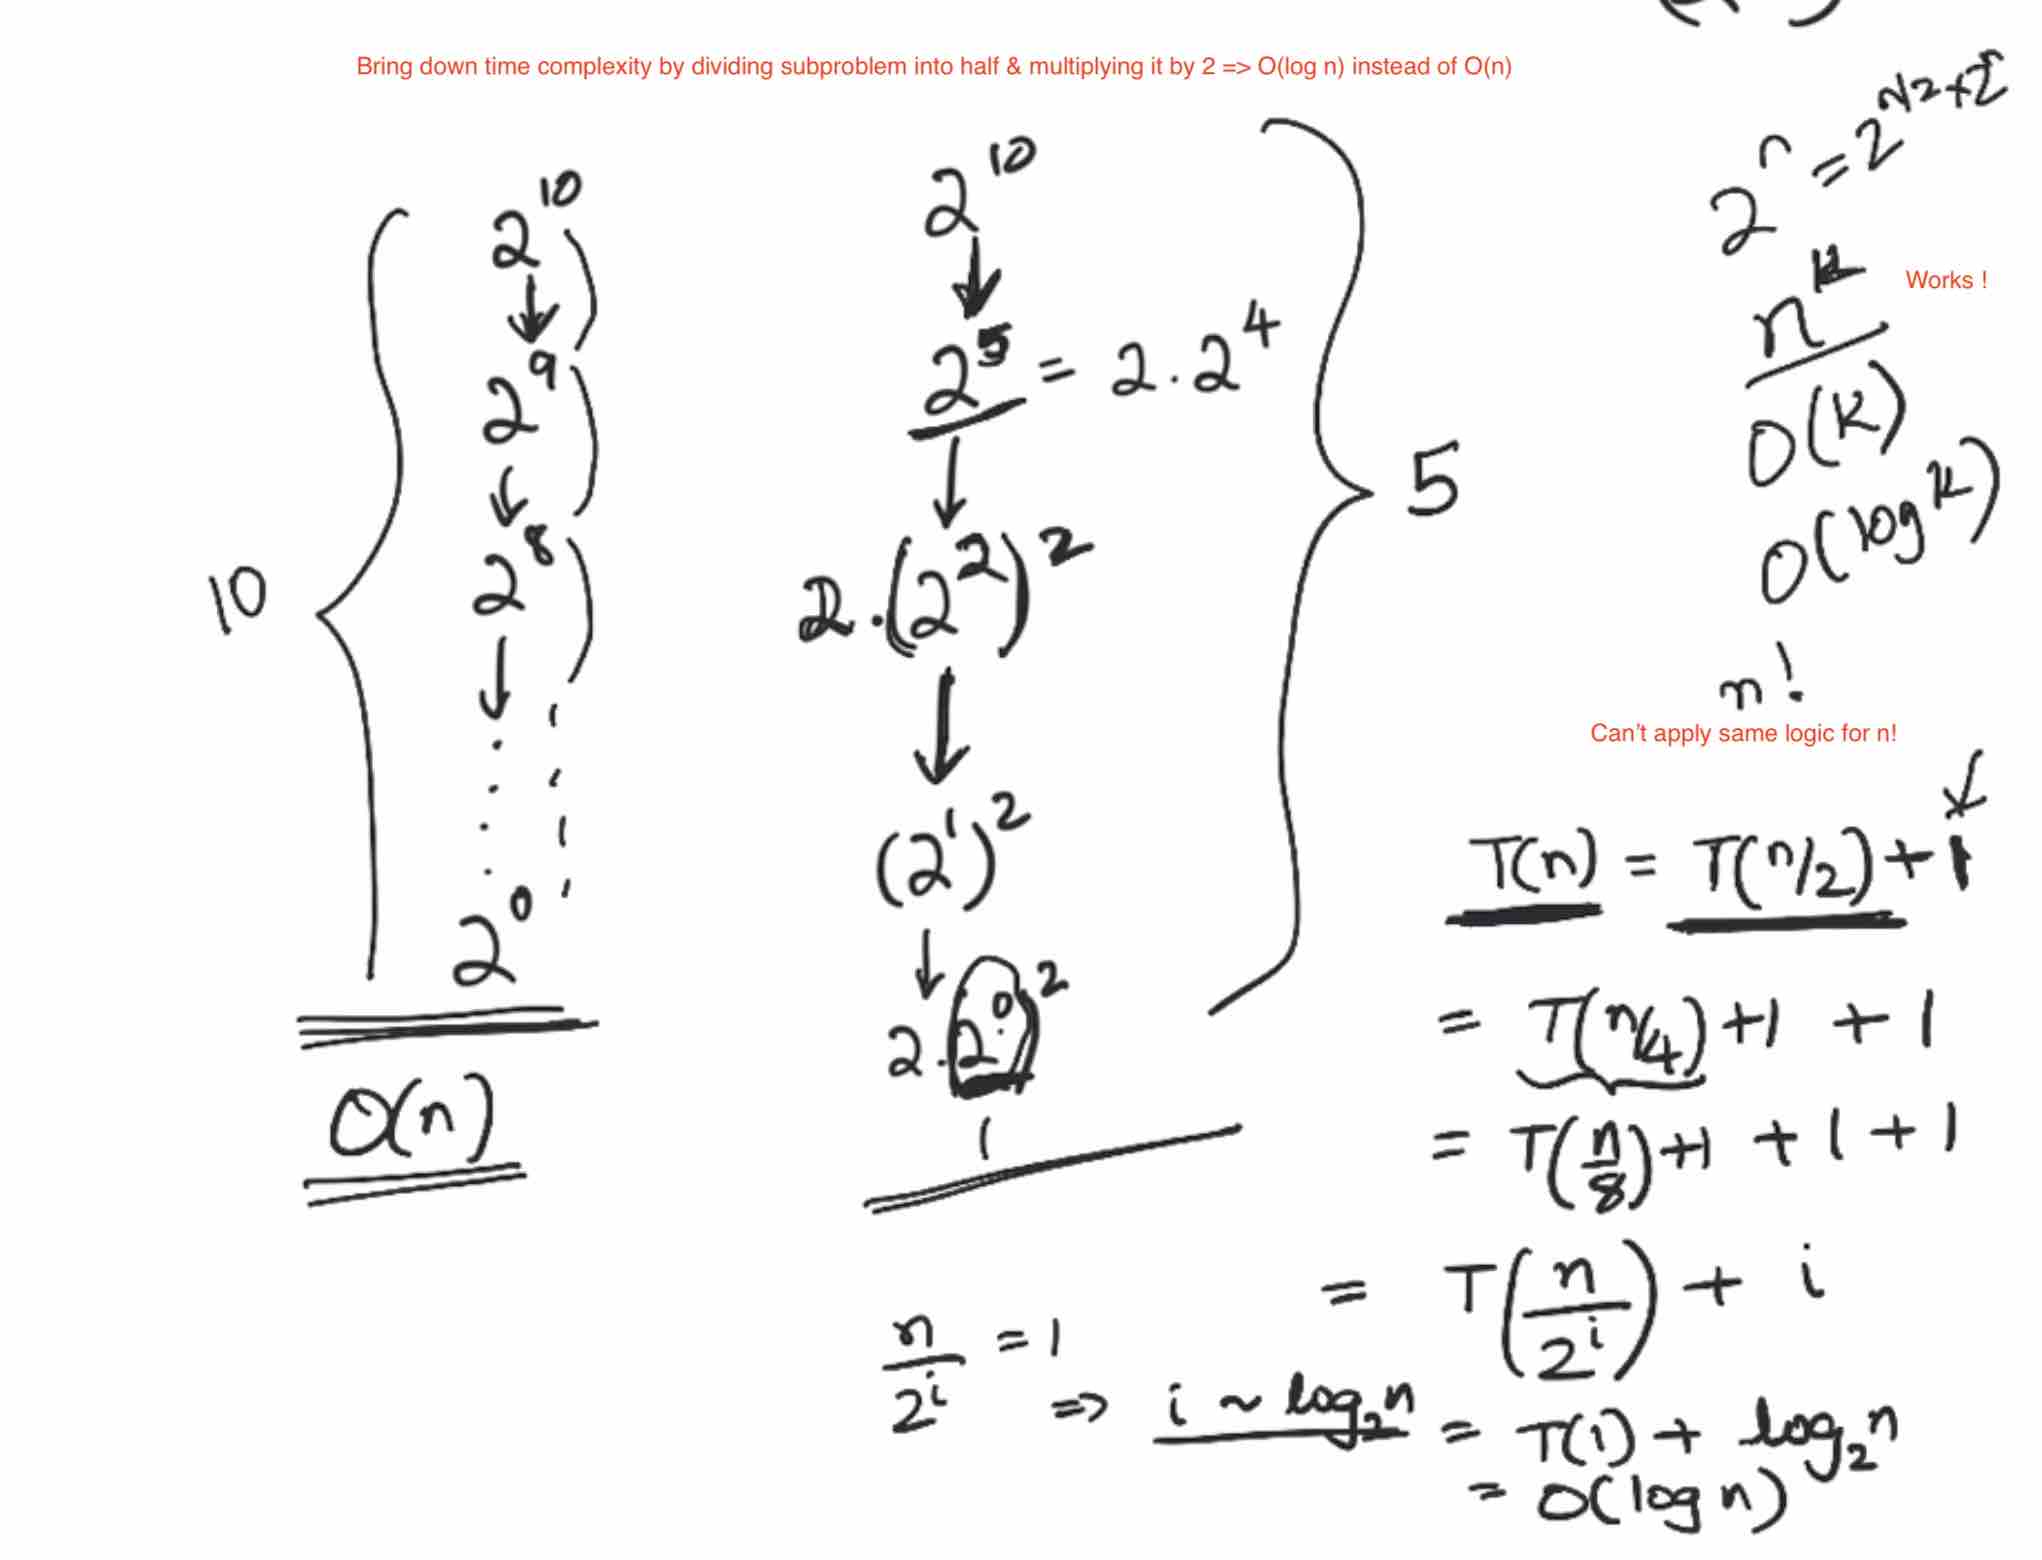 Bring down time complexity by dividing subproblem into half & multiplying it by 2 => O(log n) instead of O(n)
10
2^10
2^9
2^8
2^0
O(n)
2^10
2^5 = 2.2^4
2.(2^2)^2
(2^1)^2
2.(2^0)^2
1
5
2^n = 2^n/2+
n^k
Works !
O(k)
O(log k)
n!
Can't apply same logic for n!
T(n) = T(n/2) + 1
= T(n/4) +1 + 1
= T(n/8) +1 + 1 + 1
= T(n/2^i) + i
n/2^i = 1
=> i ~ log₂n
= T(1) + log₂n
= O(log n)